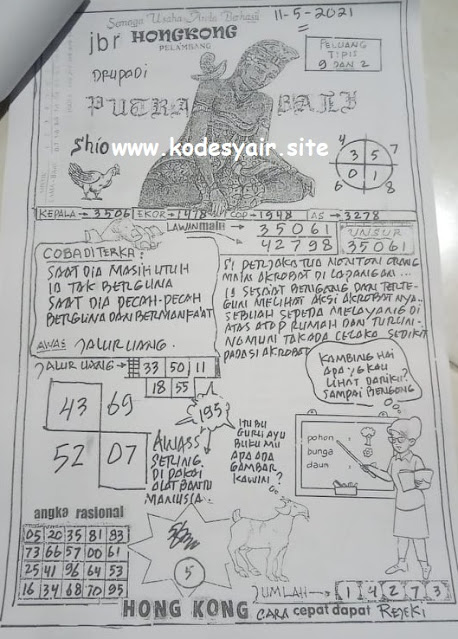 Semoga Usaha Anda Berhasil
11-5-2021
jbr HONGKONG
PELAMBANG
PELUANG
TIPIS
9 DAN 2
DRUPADI
PUTRA BALI
Shio
www.kodesyair.site
4 7
3 5
0 1
6 8
KEPALA → 3506 EKOR → 1478 COP → 1548 AS → 3278
LAWAN main → 35061
42798
UNSUR
35061
COBA DI TERKA:
SAAT DIA MASIH UTUH
IA TAK BERGUNA
SAAT DIA PECAH-PECAH
BERGUNA DAN BERMANFAAT
AWAS JALUR UANG.
SI PERJAKA TUA NONTON ORANG
MAIN AKROBAT DI LAPANGAN...
IA SEMPAT BENGONG DAN TERTE-
GUN MELIHAT AKSI AKROBATNYA..
SEBUAH SEPEDA MELAYANG DI
ATAS ATAP RUMAH DAN TURUN.
NAMUN TAK ADA CELAKA SEDIKIT
PADA SI AKROBAT
JALUR UANG → 33 50 11
18 55
KAMBING HAI
APA YG KAU
LIHAT DARIKU?
SAMPAI BENGONG
43 69
52 07
195
AWASS
SERING
DI PAKAI
ALAT BANTU
MANUSIA
ITU BU
GURU AYU
BUKUMU
APA ADA
GAMBAR
KAWIN?
pohon
bunga
daun
angka rasional
05 20 35 81 93
73 66 57 00 61
25 41 96 64 53
16 34 68 70 95
5
JUMLAH → 1 4 2 7 3
HONG KONG CARA cepat dapat REJEKI